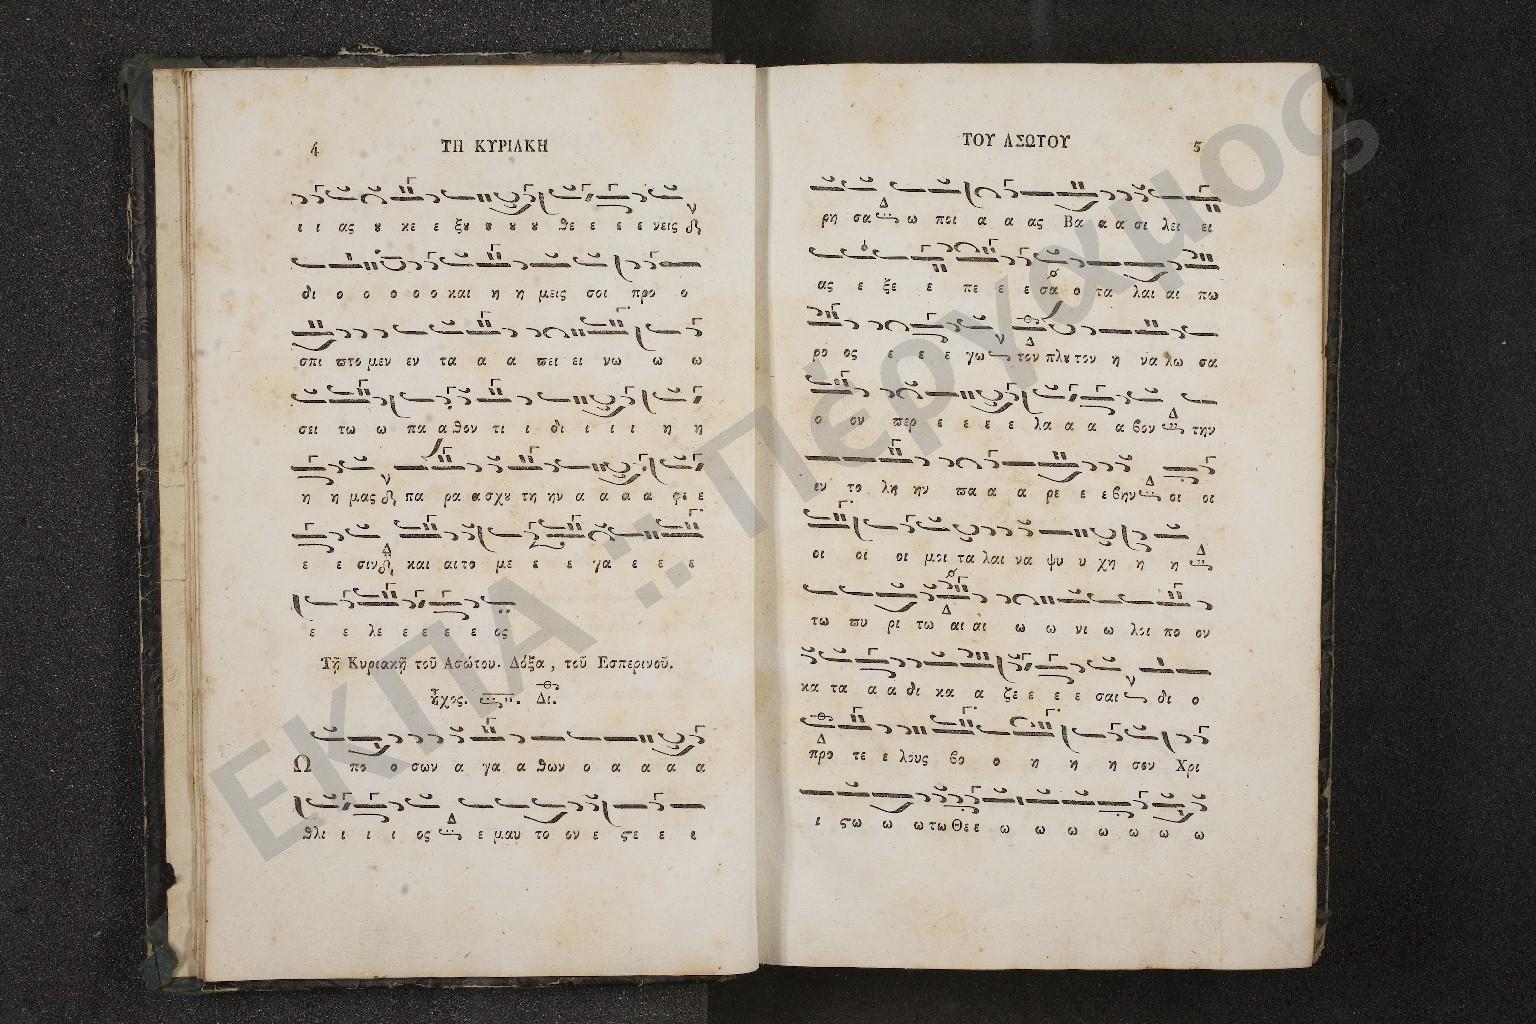 4 ΤΗ ΚΥΡΙΑΚΗ
ι ι ας ȣ κε ε ξȣ ȣ ȣ ȣ θε ε ε ε νεις
δι ο ο ο ο ο και η η μεις σοι προ ο
σπι πτο μεν εν τα α α πει ει νω ω ω
σει τω ω πα α θον τι ι δι ι ι ι η η
η η μας πα ρα α σχȣ τη ην α α α α φε ε
ε ε σιν και αι το με ε ε γα ε ε ε
ε ε λε ε ε ε ε ος
Τῇ Κυριακῇ τοῦ Ασώτου. Δόξα, τοῦ Εσπερινοῦ.
ἦχος. Δι.
Ω πο ο σων α γα α θων ο α α α α
θλι ι ι ι ος ε μαυ το ον ε ϛε ε ε
ΤΟΥ ΑΣΩΤΟΥ 5
ρη σα ω ποι α α ας Βα α α σι λει ει
ας ε ξε ε πε ε ε σα ο τα λαι αι πω
ρο ος ε ε ε γω τον πλȣ τον η να λω σα
ο ον περ ε ε ε ε λα α α α βον την
εν το λη ην πα α α ρε ε ε βην οι οι
οι οι οι μοι τα λαι να ψυ υ χη η η
τω πυ ρι τω αι αι ω ω νι ω λοι πο ον
κα τα α α δι κα α ζε ε ε ε σαι δι ο
προ τε ε λους βο ο η η η σον Χρι
ι ϛω ω ω τω Θε ε ω ω ω ω ω ω ω
ΕΚΠΑ :: Πέργαμος